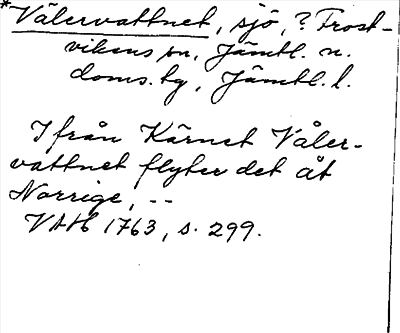 *Vålervattnet, sjö, ? Frost-
vikens sn, Jämtl. n.
doms. tg, Jämtl. l.
Ifrån Kärnet Våler-
vattnet flyter det åt
Norrige, --
VAH 1763, s. 299.